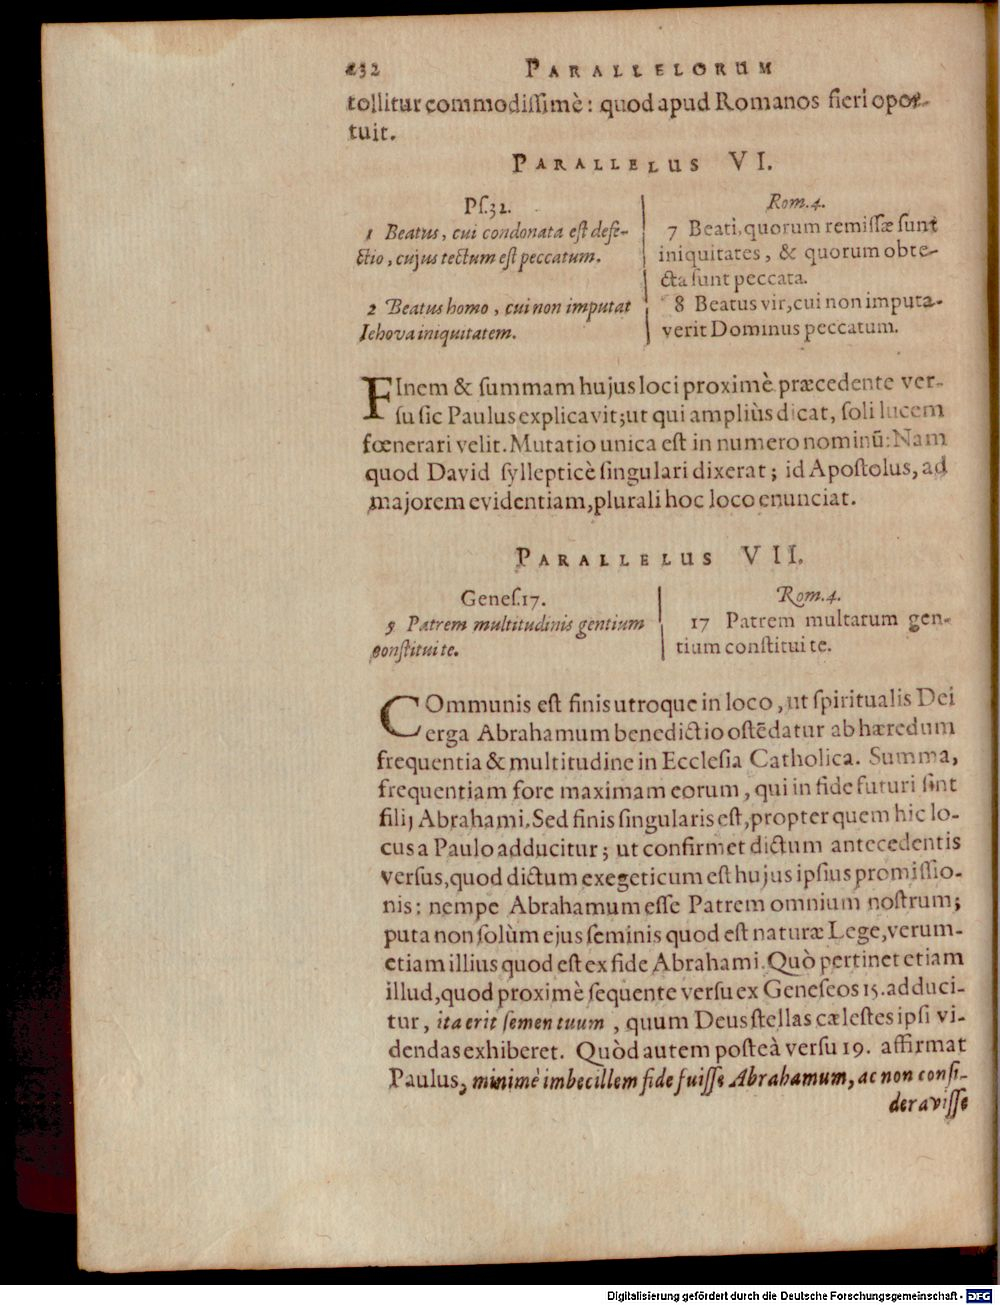 232 PARALLELORUM
tollitur commodissimè: quod apud Romanos fieri opor-
tuit.
PARALLELUS VI.
Ps.32.
1 Beatus, cui condonata est defe-
ctio, cujus tectum est peccatum.
2 Beatus homo, cui non imputat
Iehova iniquitatem.
Rom.4.
7 Beati, quorum remissæ sunt
iniquitates, & quorum obte-
cta sunt peccata.
8 Beatus vir, cui non imputa-
verit Dominus peccatum.
FInem & summam hujus loci proximè præcedente ver-
su sic Paulus explicavit; ut qui ampliùs dicat, soli lucem
fœnerari velit. Mutatio unica est in numero nominū: Nam
quod David syllepticè singulari dixerat; id Apostolus, ad
majorem evidentiam, plurali hoc loco enunciat.
PARALLELUS VII.
Genes.17.
5 Patrem multitudinis gentium
constitui te.
Rom.4.
17 Patrem multarum gen-
tium constitui te.
COmmunis est finis utroque in loco, ut spiritualis Dei
erga Abrahamum benedictio ostēdatur ab hæredum
frequentia & multitudine in Ecclesia Catholica. Summa,
frequentiam fore maximam eorum, qui in fide futuri sint
filij Abrahami. Sed finis singularis est, propter quem hic lo-
cus a Paulo adducitur; ut confirmet dictum antecedentis
versus, quod dictum exegeticum est hujus ipsius promissio-
nis: nempe Abrahamum esse Patrem omnium nostrum;
puta non solùm ejus seminis quod est naturæ Lege, verum-
etiam illius quod est ex fide Abrahami. Quò pertinet etiam
illud, quod proximè sequente versu ex Geneseos 15. adduci-
tur, ita erit semen tuum, quum Deus stellas cælestes ipsi vi-
dendas exhiberet. Quòd autem posteà versu 19. affirmat
Paulus, minimè imbecillem fide fuisse Abrahamum, ac non consi-
deravisse
Digitalisierung gefördert durch die Deutsche Forschungsgemeinschaft - DFG